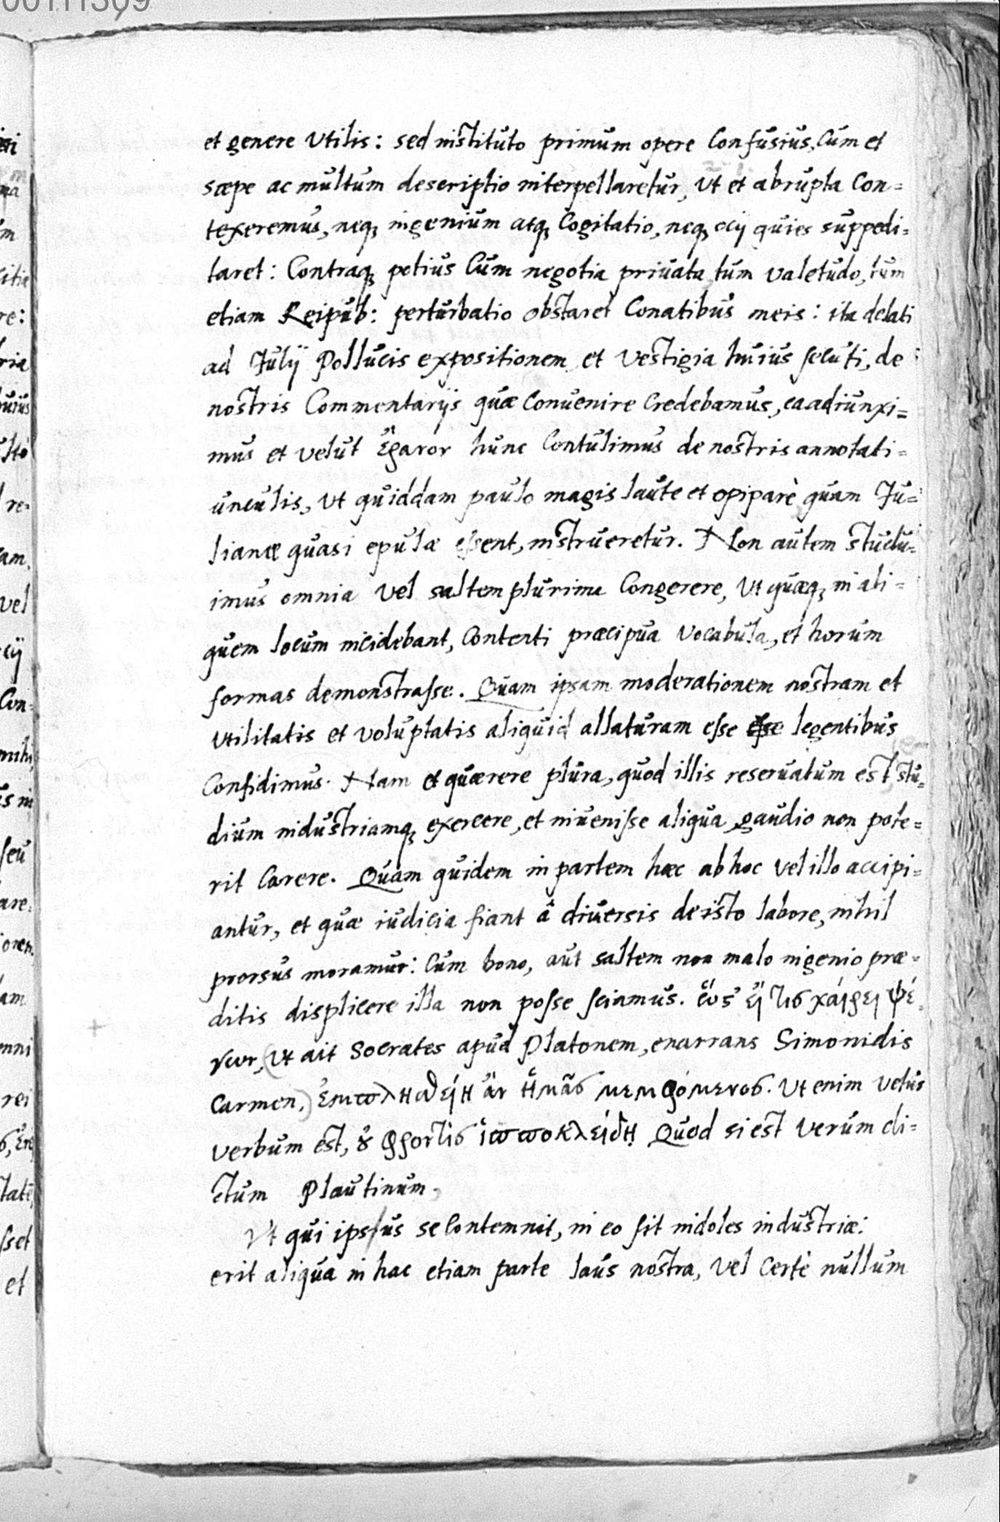 00111309
et genere Utilis: sed instituto primum opere Confusius, Cum et
sæpe ac multum descriptio interpellaretur, Ut et abrupta Con=
texeremus, neq; ingenium atq; Cogitatio, neq; ocij quies suppedi=
taret: Contraq; potius Cum negotia priuata, tum valetudo, tum
etiam Reipub: perturbatio obstaret Conatibus meis: ita delati
ad Julij Pollucis expositionem et Vestigia huius secuti, de
nostris Commentarijs quæ Conuenire Credebamus, ea adiunxi=
mus et velut ἔρανον hunc Contulimus de nostris annotati=
unculis, Ut quiddam paulo magis laute et opiparè quam Ju=
lianæ quasi epulæ essent, instrueretur. Non autem studu=
imus omnia Vel saltem plurima Congerere, Ut quæq; in ali=
quem locum incidebant, Contenti præcipua Vocabula, et horum
formas demonstrasse. Quam ipsam moderationem nostram et
Utilitatis et voluptatis aliquid allaturam esse legentibus
Confidimus. Nam et quærere plura, quod illis reseruatum est stu=
dium industriamq; exercere, et inuenisse aliqua gaudio non pote=
rit Carere. Quam quidem in partem hæc ab hoc Vel illo accipi=
antur, et quæ iudicia fiant â diuersis de isto labore, nihil
prorsus moramur: Cum bono, aut saltem non malo ingenio præ=
ditis displicere illa non posse sciamus. ἕως εἴ τις χαίρει ψέ=
γων, (Ut ait Socrates apud Platonem, enarrans Simonidis
Carmen,) ἐμπλησθείη ἂν ἡμᾶς μεμφόμενος. Ut enim Vetus
verbum est, οὐ φροντὶς ἱπποκλείδῃ Quod si est Verum di=
ctum Plautinum,
Ut qui ipsus se Contemnit, in eo sit indoles industriæ:
erit aliqua in hac etiam parte laus nostra, Vel Certè nullum